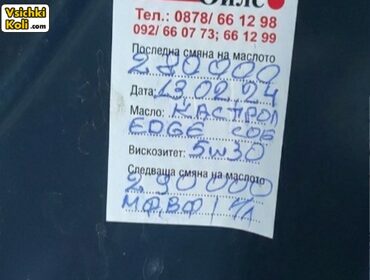 Vsichki
Koli.com
ОЙЛС
Тел.: 0878/ 66 12 98
092/ 66 07 73; 66 12 99
Последна смяна на маслото
280000
Дата: 23 02 24
Масло: КАСТРОЛ
EDGE
Вискозитет: 5W30
Следваща смяна на маслото
290000